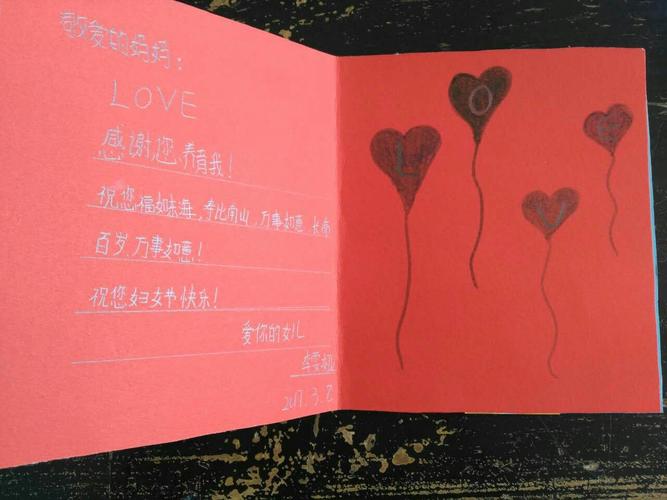 敬爱的妈妈:
LOVE
感谢您养育我!
祝您福如东海,寿比南山,万事如意 长命
百岁,万事如意!
祝您妇女节快乐!
爱你的女儿
李雯娅
2017.3.8
L O V E